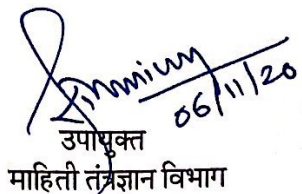 06/11/20
उपायुक्त
माहिती तंत्रज्ञान विभाग